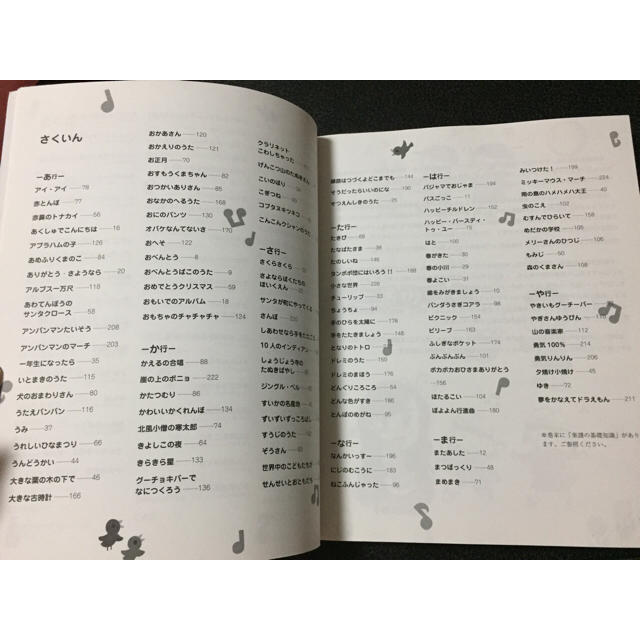 さくいん
—あ行—
アイ・アイ——78
赤とんぼ——72
赤鼻のトナカイ——66
あくしゅでこんにちは——16
アブラハムの子——126
あめふりくまのこ——84
ありがとう・さようなら——20
アルプス一万尺——58
あわてんぼうの
サンタクロース——58
アンパンマンたいそう——208
アンパンマンのマーチ——203
一年生になったら——35
いとまきのうた——118
犬のおまわりさん——80
うたえバンバン——116
うみ——37
うれしいひなまつり——90
うんどうかい——44
大きな栗の木の下で——46
大きな古時計——166
おかあさん——120
おかえりのうた——121
お正月——70
おすもうくまちゃん——82
おつかいありさん——81
おなかのへるうた——168
おにのパンツ——112
オバケなんてないさ——170
おへそ——122
おべんとう——18
おべんとうばこのうた——19
おめでとうクリスマス——59
おもいでのアルバム——28
おもちゃのチャチャチャ——124
—か行—
かえるの合唱——88
崖の上のポニョ——222
かたつむり——86
かわいいかくれんぼ——90
北風小僧の寒太郎——74
きよしこの夜——60
きらきら星——138
グーチョキパーで
なにつくろう——136
クラリネット
こわしちゃった
げんこつ山のたぬきさん
こいのぼり
こぎつね
コブタヌキツネコ
こんこんクシャンのうた
—さ行—
さくらさくら
さよならぼくたちの
ほいくえん
サンタが町にやってくる
さんぽ
しあわせなら手をたたこう
10人のインディアン
しょうじょう寺の
たぬきばやし
ジングル・ベル
すいかの名産地
ずいずいずっころばし
すうじのうた
ぞうさん
世界中のこどもたちが
せんせいとおともだち
線路はつづくよどこまでも——144
そうだったらいいのにな
ぞうさんのぼうし
—た行—
たきび——69
たなばたさま
たのしいね——148
タンポポ団にはいろう!!——188
小さな世界
チューリップ
ちょうちょ
手のひらを太陽に——176
手をたたきましょう——148
となりのトトロ
ドレミのうた
ドレミのまほう
どんぐりころころ——50
どんな色がすき
とんぼのめがね——94
—な行—
なんかいっすー——196
にじのむこうに——183
ねこふんじゃった——96
—は行—
パジャマでおじゃま——194
バスごっこ
ハッピーチルドレン
ハッピー・バースディ・
トゥ・ユー
はと——100
春がきた
春の小川
春よこい
歯をみがきましょう
パンダうさぎコアラ
ピクニック——154
ビリーブ
ふしぎなポケット
ぶんぶんぶん
ポカポカおひさまありがとう
ほたるこい
ぼよよん行進曲
—ま行—
またあした——12
まつぼっくり——48
まめまき——71
みいつけた!——199
ミッキーマウス・マーチ
南の島のハメハメハ大王
虫のこえ
むすんでひらいて
めだかの学校
メリーさんのひつじ
もみじ
森のくまさん
—や行—
やきいもグーチーパー
やぎさんゆうびん
山の音楽家
勇気100%——214
勇気りんりん
夕焼け小焼け
ゆき——72
夢をかなえてドラえもん——211
※巻末に「楽譜の基礎知識」があり
ます。ご参照ください。